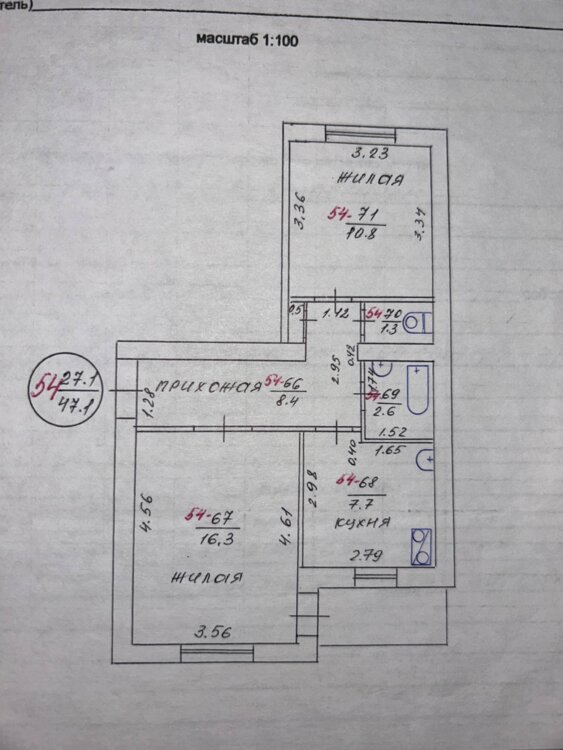 тель)
масштаб 1:100
3.23
жилая
3.36
54-71
10.8
3.34
0,5
1.42
54-70
1.3
2.95
0.42
54
27.1
47.1
прихожая
54-66
8.4
1.28
1.74
54-69
2.6
1.52
1.65
0.40
2.98
54-68
7.7
кухня
2.79
4.56
54-67
16,3
4.61
жилая
3.56